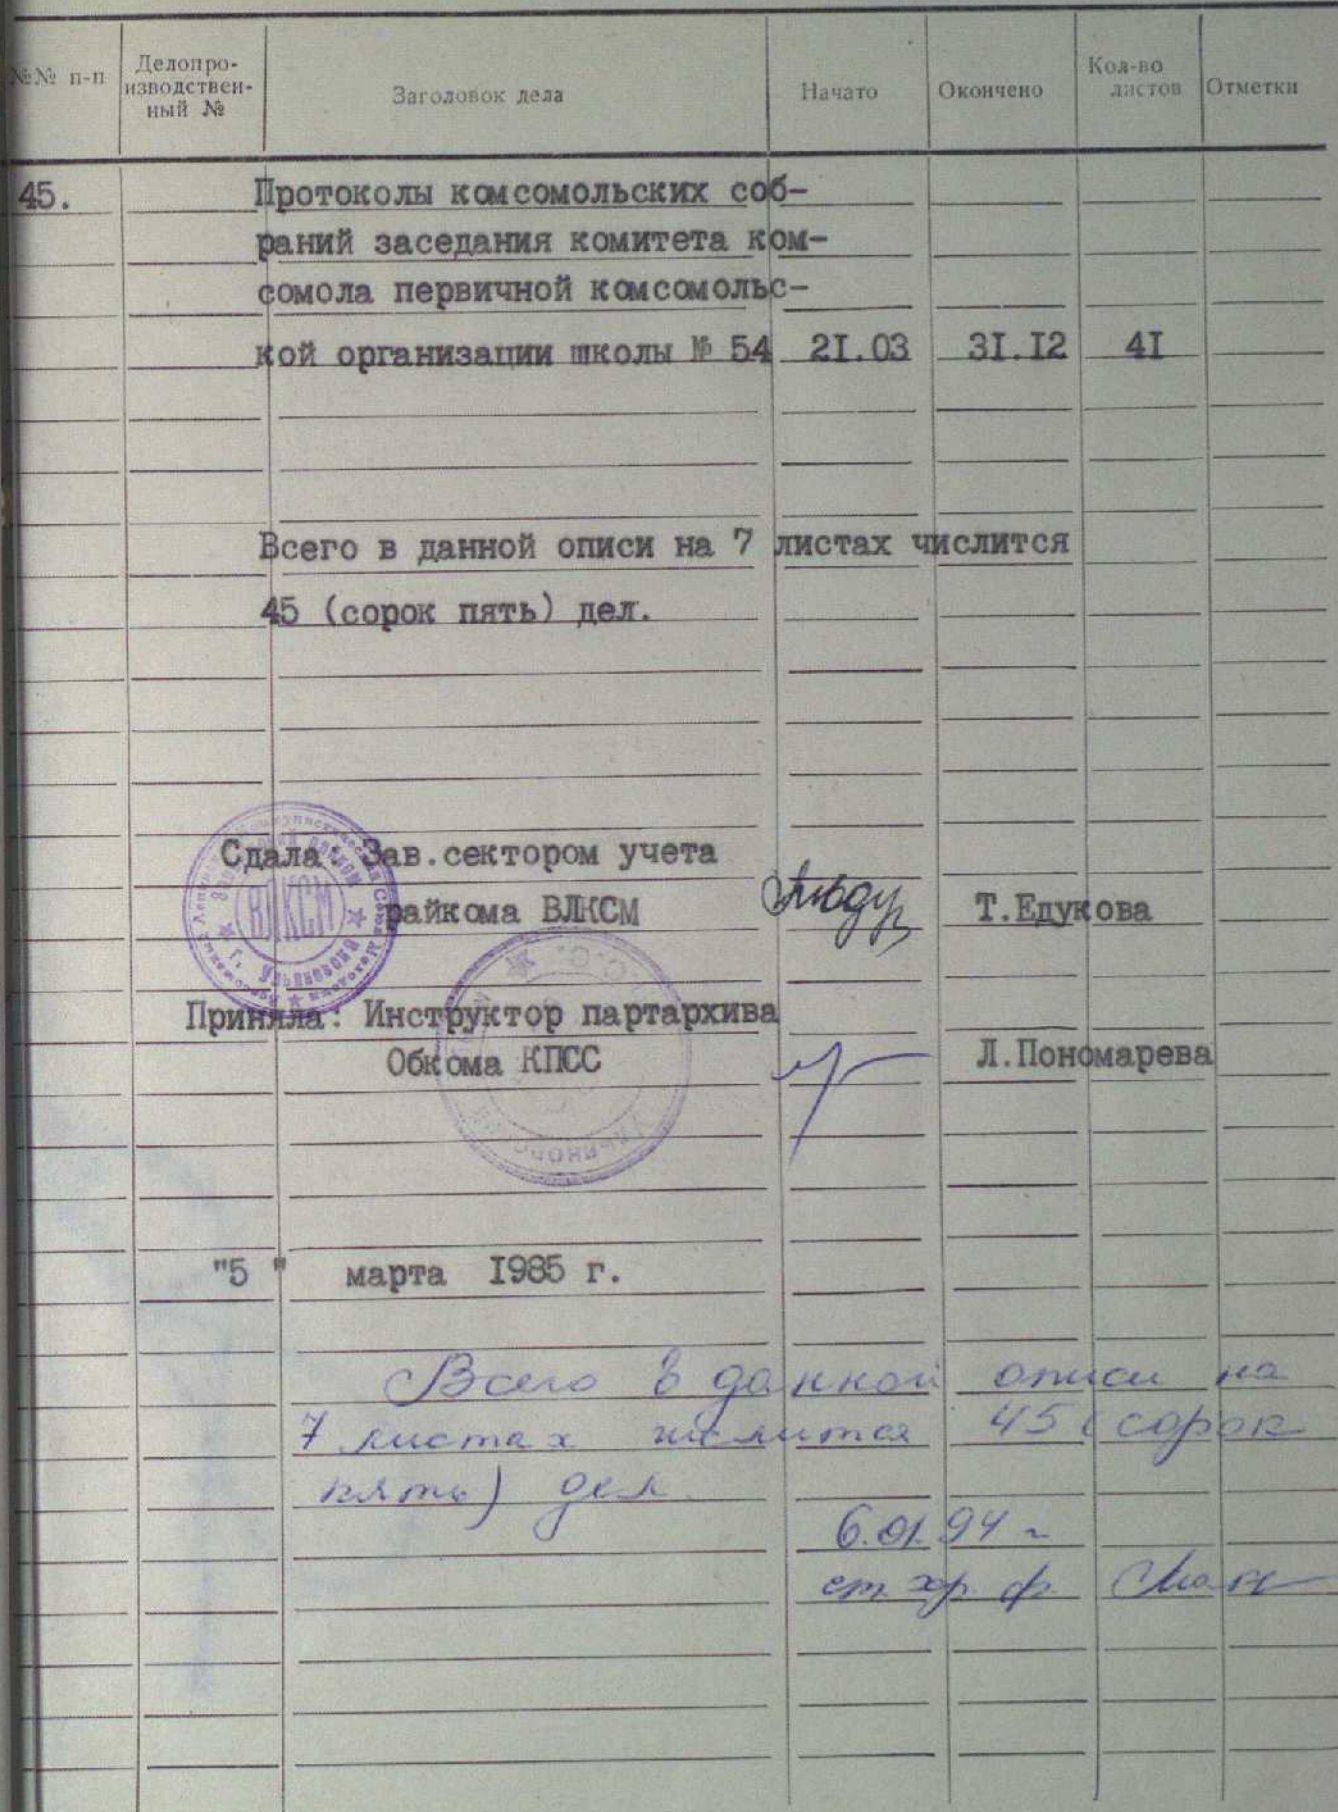 №№ п-п Делопро-изводствен-ный № Заголовок дела Начато Окончено Кол-во листов Отметки
45. Протоколы комсомольских соб-
раний заседания комитета ком-
сомола первичной комсомольс-
кой организации школы № 54 2I.03 3I.I2 4I
Всего в данной описи на 7 листах числится
45 (сорок пять) дел.
Сдала: Зав.сектором учета
райкома ВЛКСМ Т.Едукова
ВЛКСМ
г. Ульяновска
Приняла: Инструктор партархива
Обкома КПСС Л.Пономарева
"5 " марта I985 г.
Всего в данной описи на
7 листах числится 45 (сорок
пять) дел.
6.01.94 г
ст. хр. ф.